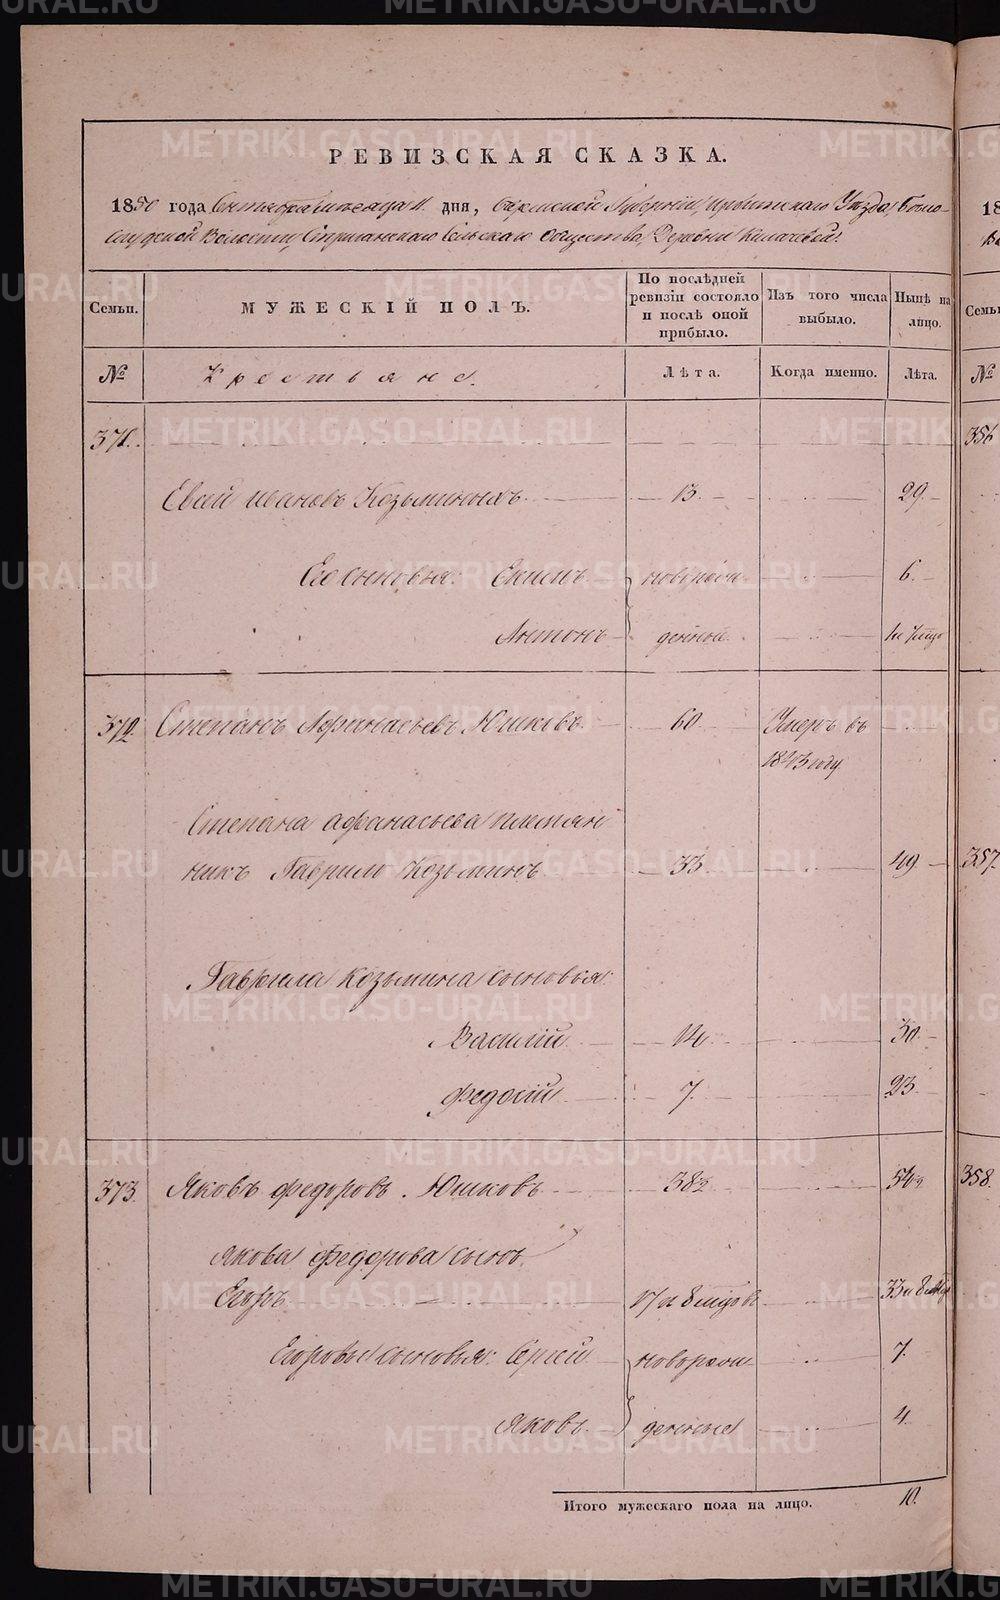 METRIKI.GASO-URAL.RU
РЕВИЗСКАЯ СКАЗКА.
1850 года Сентября месяца 11. дня, Пермской Губернии, Ирбитскаго Уезда, Бело-
слудской Волости, Стриганскаго Сельскаго Общества, Деревни
Семьи.
МУЖЕСКІЙ ПОЛЪ.
По послѣдней ревизіи состояло и послѣ оной прибыло.
Изъ того числа выбыло.
Нынѣ на лицо.
№
Крестьяне.
Лѣта.
Когда именно.
Лѣта.
371.
Евсей Ивановъ Козьминыхъ 13. 29.
Его сыновья: новорож- 6.
Антонъ денной
372. Степанъ Афанасьевъ Юшковъ 60 Умеръ въ
1843 году
Степана Афанасьева племян-
никъ Гаврило Козьминъ 33 49
Гаврила Козьмина сыновья:
Василій 14. 30.
Федосій 7. 23.
373. Яковъ Федоровъ Юшковъ 38½ 54½
Якова Федорова сынъ
Егоръ 17 и 8 мѣсяцовъ 33 и 8
Егоровы сыновья: Сергей новорож- 7.
Яковъ денные 4.
Итого мужескаго пола на лицо. 10.
18
Семьи
№
356
357.
358.